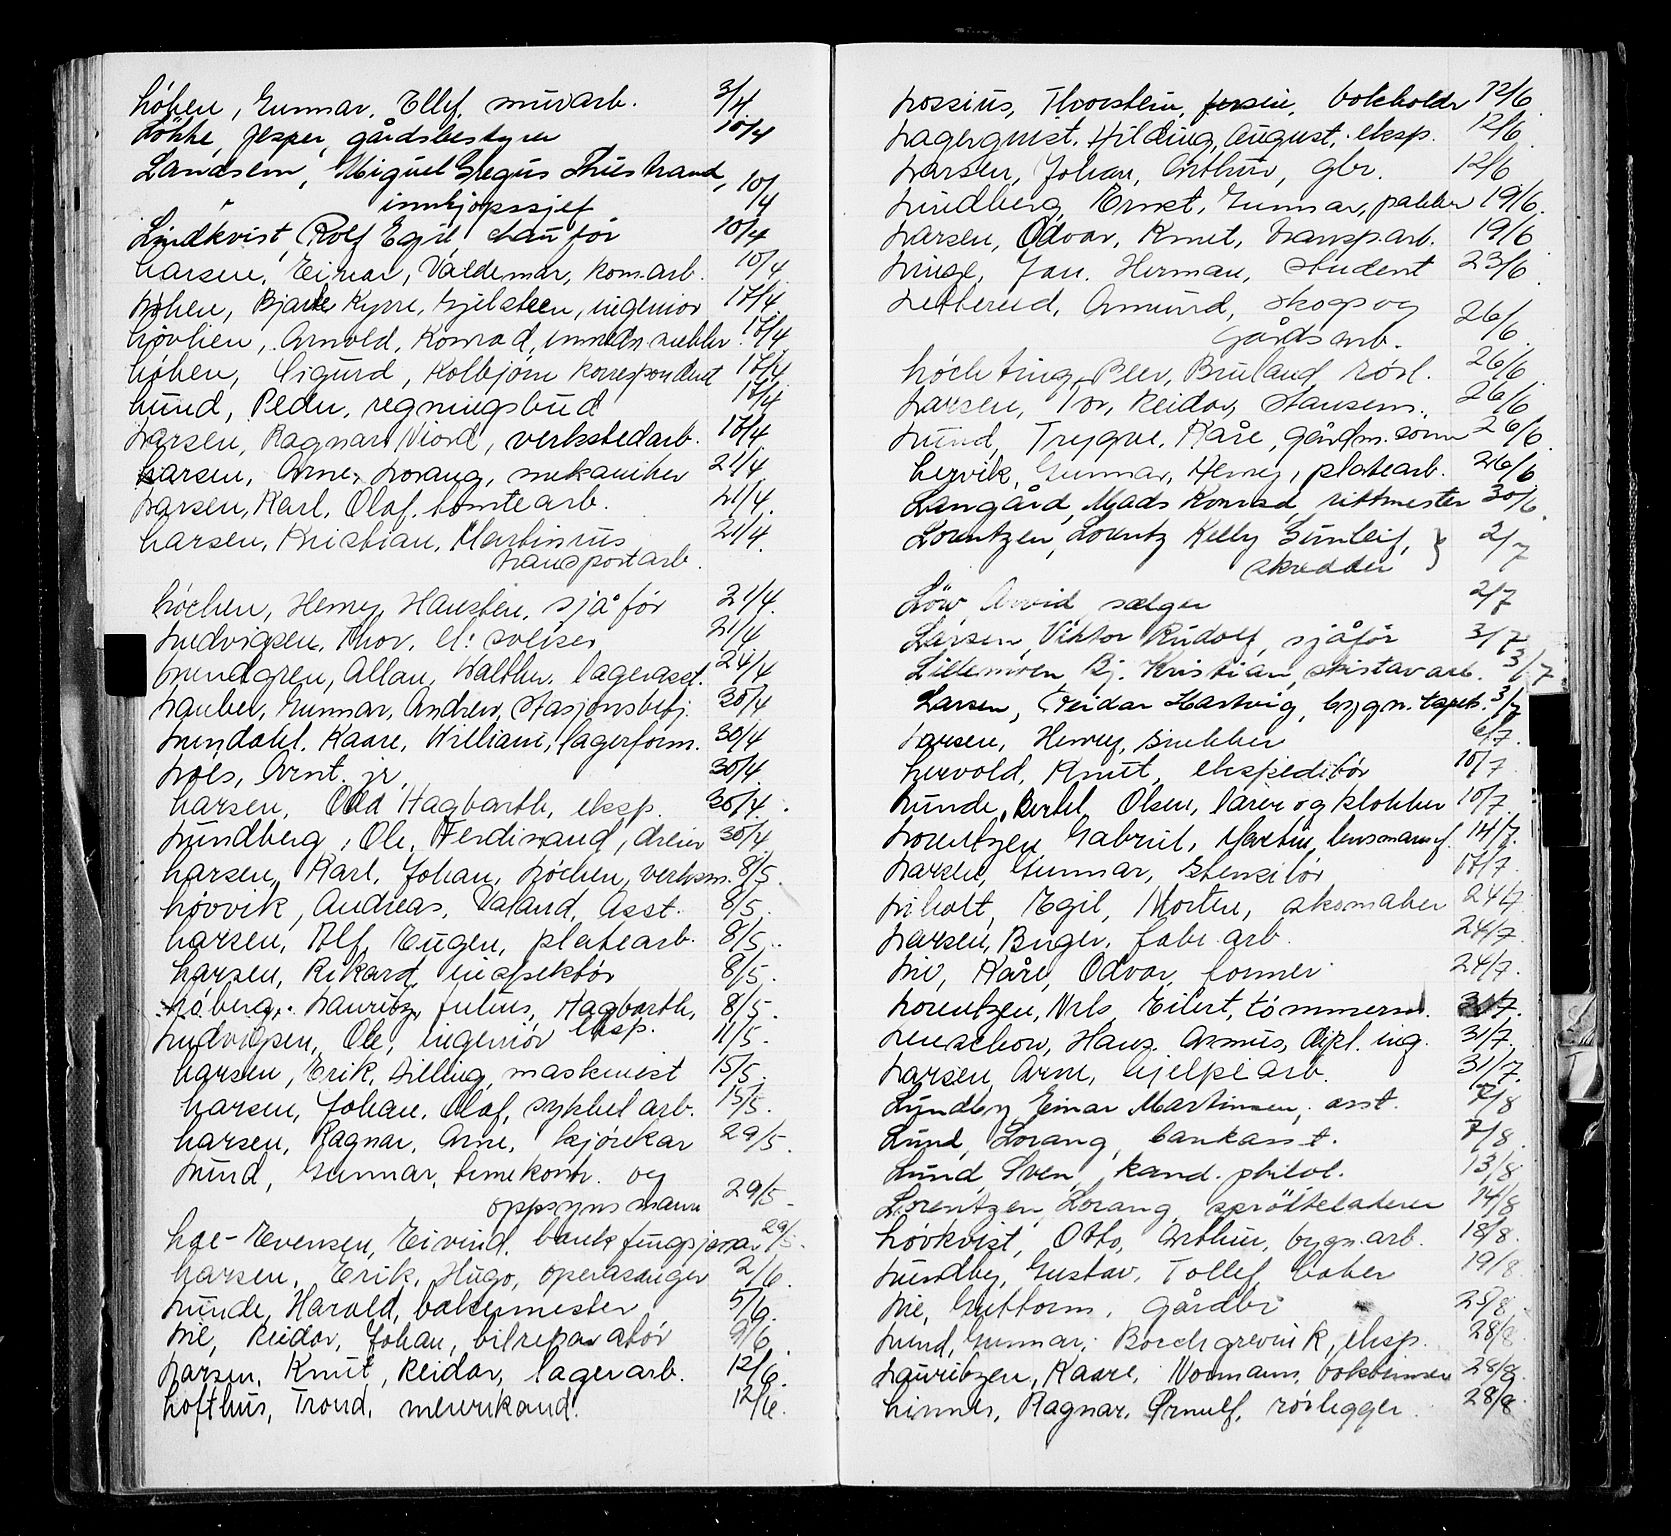 Løken, Gunnar, Ellef, murarb. 3/4
Løkke, Jesper, gårdsbestyrer 10/4
Landsem, Miguel Gregus Thuestrand,
innkjøpssjef 10/4
Lindkvist, Rolf Egil, chaufför 10/4
Larsen, Einar, Valdemar, kom.arb. 10/4
Løken, Bjarke Kyrre, Gjelsteen, ingeniør 17/4
Løvlien, Arnold, Konrad, snekker. 17/4
Løken, Sigurd, Kolbjørn korrespondent 17/4
Lund, Peder, regningsbud 17/4
Larsen, Ragnar Njord, verkstedarb. 17/4
Larsen, Arne, Lorang, mekaniker 21/4
Larsen, Karl, Olaf. tomtearb. 21/4.
Larsen, Kristian, Martinius 21/4.
transportarb.
Løchen, Henry, Hansten, sjåfør 21/4.
Ludvigsen, Thor, el: sveiser 21/4
Lundgren, Allan, Walther, lagerasst. 24/4
Lauber, Gunnar, Andrew, stasjonsbetj. 30/4
Lundahl, Kaare, William, lagerform. 30/4
Loes, Arnt. jr. 30/4
Larsen, Odd Hagbarth, eksp. 30/4.
Lundberg, Ole, Ferdinand, dreier 30/4
Larsen, Karl, Johan, Løchen, verksm. 8/5.
Løvvik, Andreas, Valand, Asst. 8/5.
Larsen, Alf, Eugen, platearb. 8/5.
Larsen, Rikard, inspektør 8/5.
Løberg, Lauritz, Julius, Hagbarth, 8/5.
eksp.
Ludvigsen, Ole, ingeniør 11/5.
Larsen, Erik, Dilling, maskinist 15/5.
Larsen, Johan, Olaf, sykkelarb. 15/5.
Larsen, Ragnar, Arne, kjørekar 29/5.
Lund, Gunnar, timekontr. og
oppsynsmann 29/5.
Loe-Evensen, Eivind, bankfungsjonær 29/5.
Larsen, Erik, Hugo, operasanger 2/6.
Lunde, Harald, bakermester 5/6.
Lie, Reidar, Johan, bilreparatør 9/6
Larsen, Knut, Reidar, lagerarb. 12/6.
Lofthus, Trond, merrkand. 12/6.
Lossius, Thorstein, bokholder 12/6
Lagerquist, Hilding, August, eksp. 12/6
Larsen, Johan, Arthur, gbr. 12/6
Lindberg, Ernst, Gunnar, pakker 19/6.
Larsen, Odvar, Knut, transp.arb. 19/6
Linge, Jan, Herman, student 23/6
Letterud, Amund, skogs og
gårdsarb. 26/6
Løchting, Peer, Bruland, rørl. 26/6
Larsen, Tor, Reidar, stansem. 26/6
Lund, Trygve, Kåre, gårdm. sønn 26/6
Lervik, Gunnar, Henry, platearb. 26/6
Langård, Mads Konrad, rittmester 30/6
Lorentzen, Lorentz Kelly Gunleif, 2/7
skredder
Löw Arvid selger 2/7
Larsen, Viktor Rudolf, sjåför 3/7
Lillemoen Bj. Kristian, 3/7
Larsen, Reidar Hartvig, bygn. tapet. 3/7
Larsen, Henry, snekker 6/7.
Lervold, Knut, ekspeditør 10/7
Lunde, Bertel Olsen, lærer og klokker 10/7.
Lorentzen Gabriel, Martin, lensmannsf. 14/7.
Larsen, Gunnar, stensilør 17/7.
Liholt, Egil, Morten, skomaker 24/7
Larsen, Birger, fabr.arb. 24/7.
Lie, Kåre, Odvar, former 24/7.
Lorentzen, Nils Eilert, tömmerm. 31/7.
Lenschow, Hans Asmus, dipl. ing. 31/7.
Larsen, Arne, hjelpearb. 31/7.
Lundby Einar Martinsen, asst. 7/8
Lund, Lorang, bankasst. 7/8
Lund, Sven, kand. philol. 13/8
Lorentzen, Lorang, sprölteladerer 14/8
Løvkvist, Otto, Arthur, bygn.arb. 18/8.
Lundby, Gustav, Tollef, baker 19/8
Lie, Guttorm, gårdbr 25/8.
Lund, Gunnar, Borchgrevink, eksp. 28/8
Lauritzen, Kaare, Normann, bokbinder 28/8.
Linnes, Ragnar, Ørnulf, rørlegger 28/8